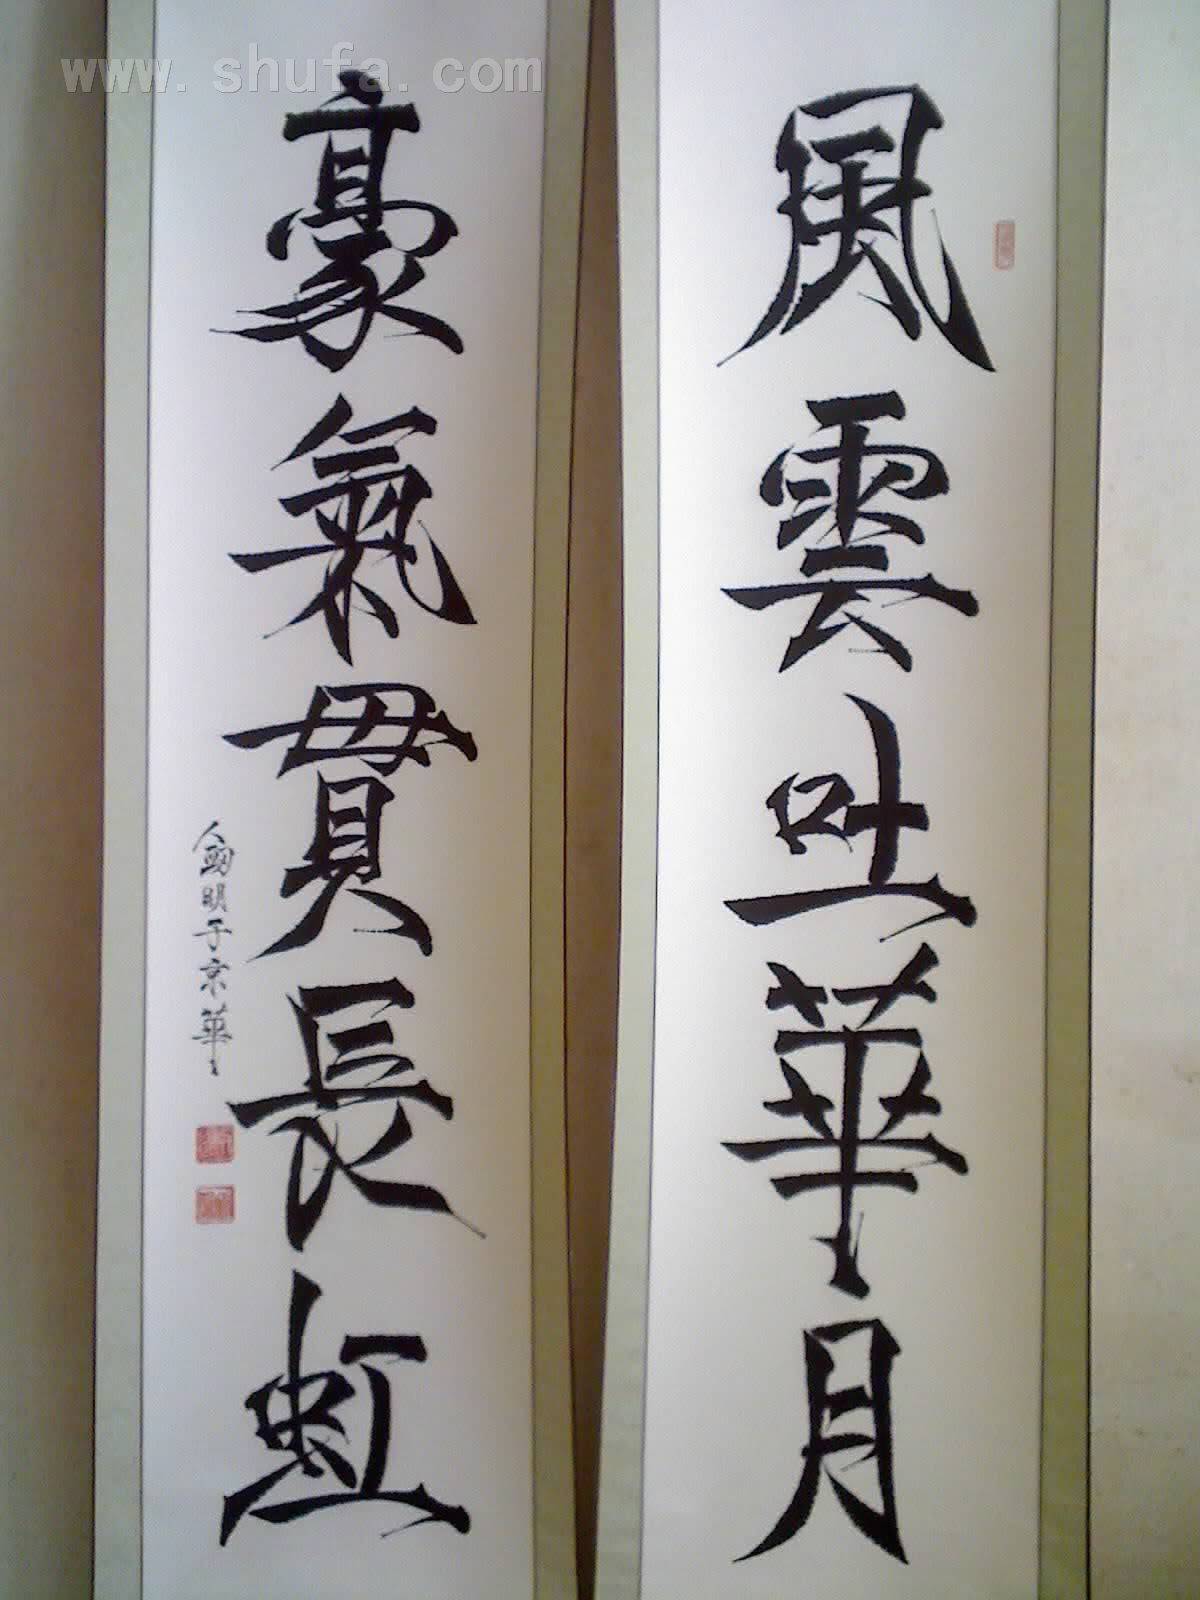 www.shufa.com
風雲吐華月
豪氣貫長虹
明子京華